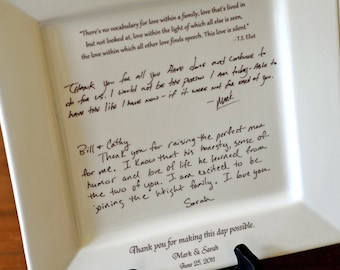 "There's no vocabulary for love within a family, love that's lived in
but not looked at, love within the light of which all else is seen,
the love within which all other love finds speech. This love is silent."
-T.S. Eliot
Thank you for all you have done and continue to
do for us. I would not be the person I am today. Able to
have this life I have now - if it were not for both of you.
- Mark
Bill & Cathy,
Thank you for raising the perfect man
for me. I know that his honesty, sense of
humor and love of life he learned from
the two of you. I am excited to be
joining the Wright family. I love you.
Sarah
Thank you for making this day possible.
Mark & Sarah
June 25, 2011